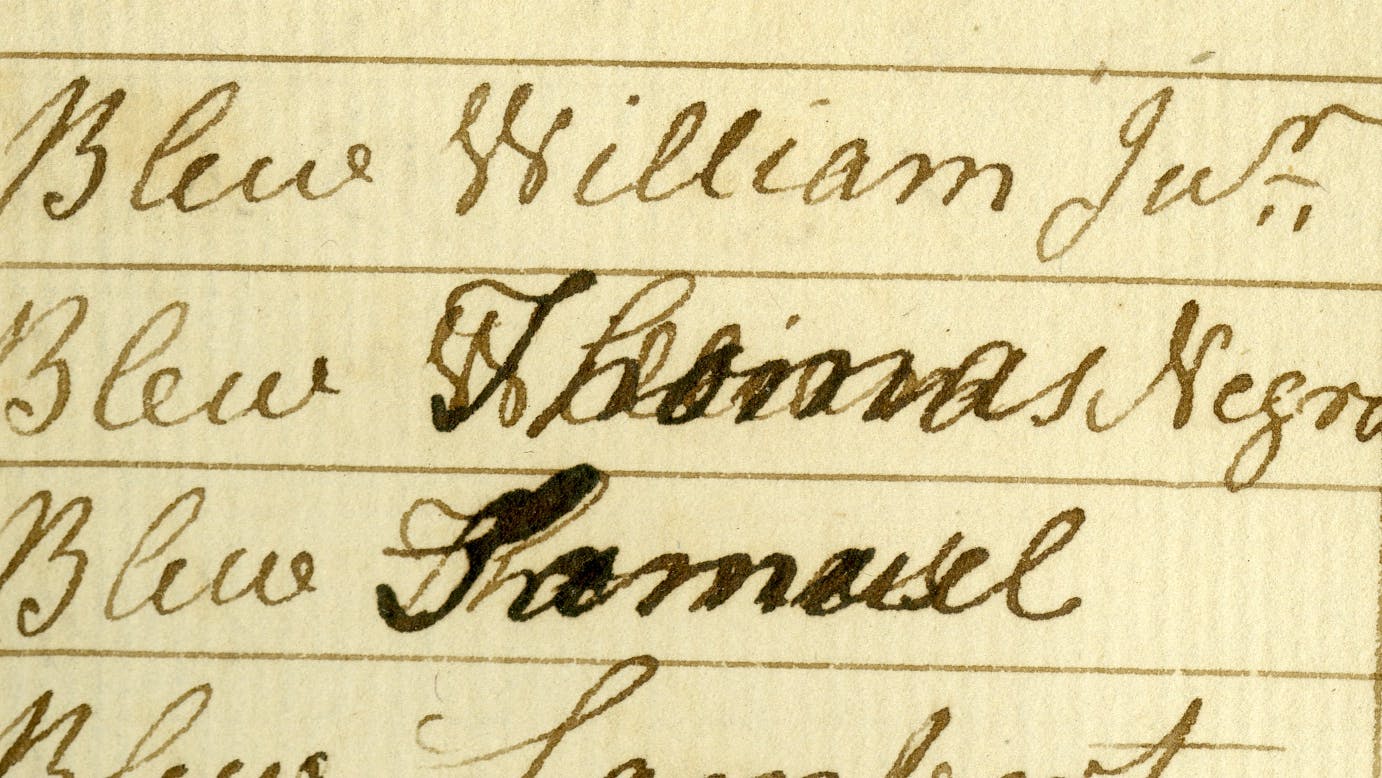 Blew William Junr
Blew Thomas Negro
Blew Samuel
Blew Lambert